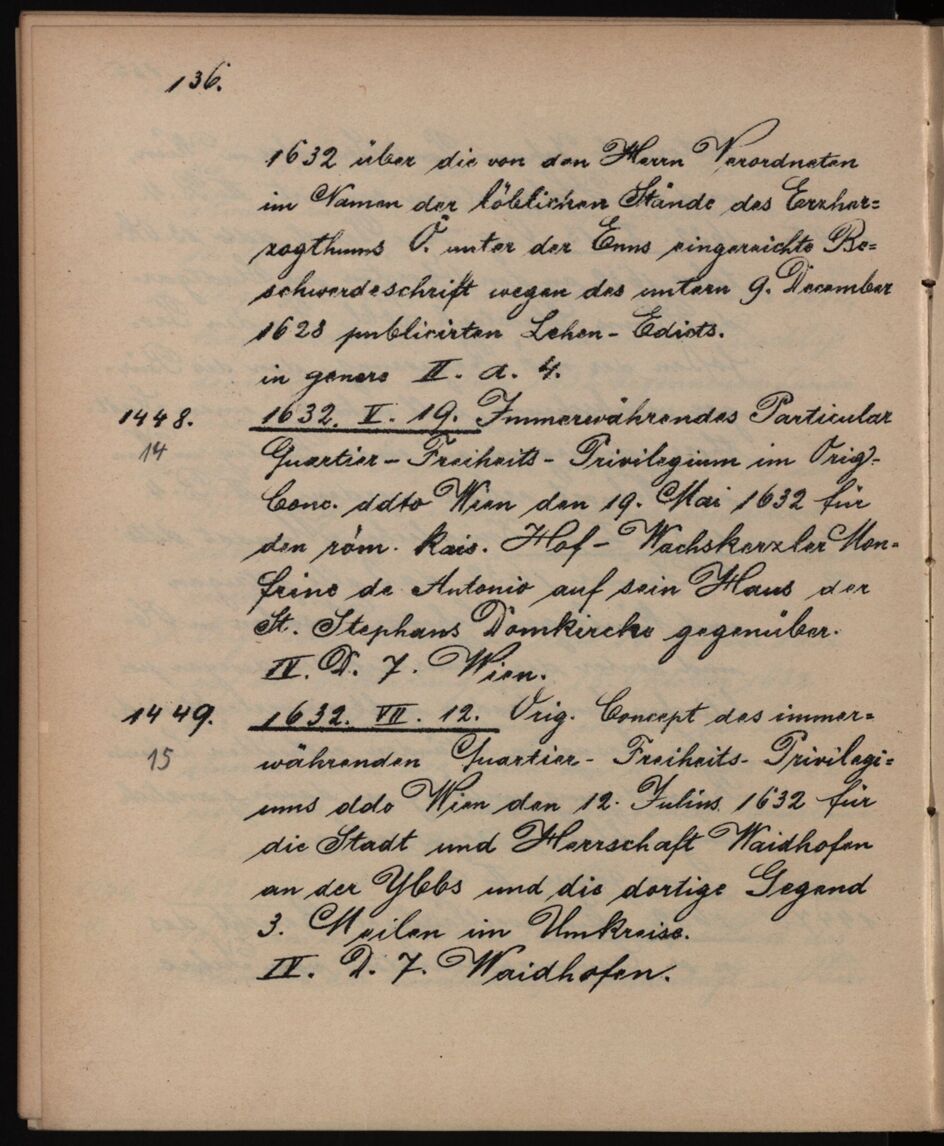 136.
1632 über die von den Herrn Verordneten
im Namen der löblichen Stände des Erzher=
zogthums Ö. unter der Enns eingereichte Be=
schwerdeschrift wegen des untern 9. December
1628 publicirten Lehen-Edicts.
in genere II. a. 4.
1448. 1632. V. 19. Immerwährendes Particular
14 Quartier-Freiheits-Privilegium im Orig.
Conc. ddto Wien den 19. Mai 1632 für
den röm. kais. Hof-Wachskerzler Mon=
frino de Antonio auf sein Haus der
St. Stephans Domkirche gegenüber.
IV. D. 7. Wien.
1449. 1632. VII. 12. Orig. Concept des immer=
15 währenden Quartier-Freiheits-Privilegi=
ums ddo Wien den 12. Julius 1632 für
die Stadt und Herrschaft Waidhofen
an der Ybbs und die dortige Gegend
3. Meilen im Umkreise.
IV. D. 7. Waidhofen.